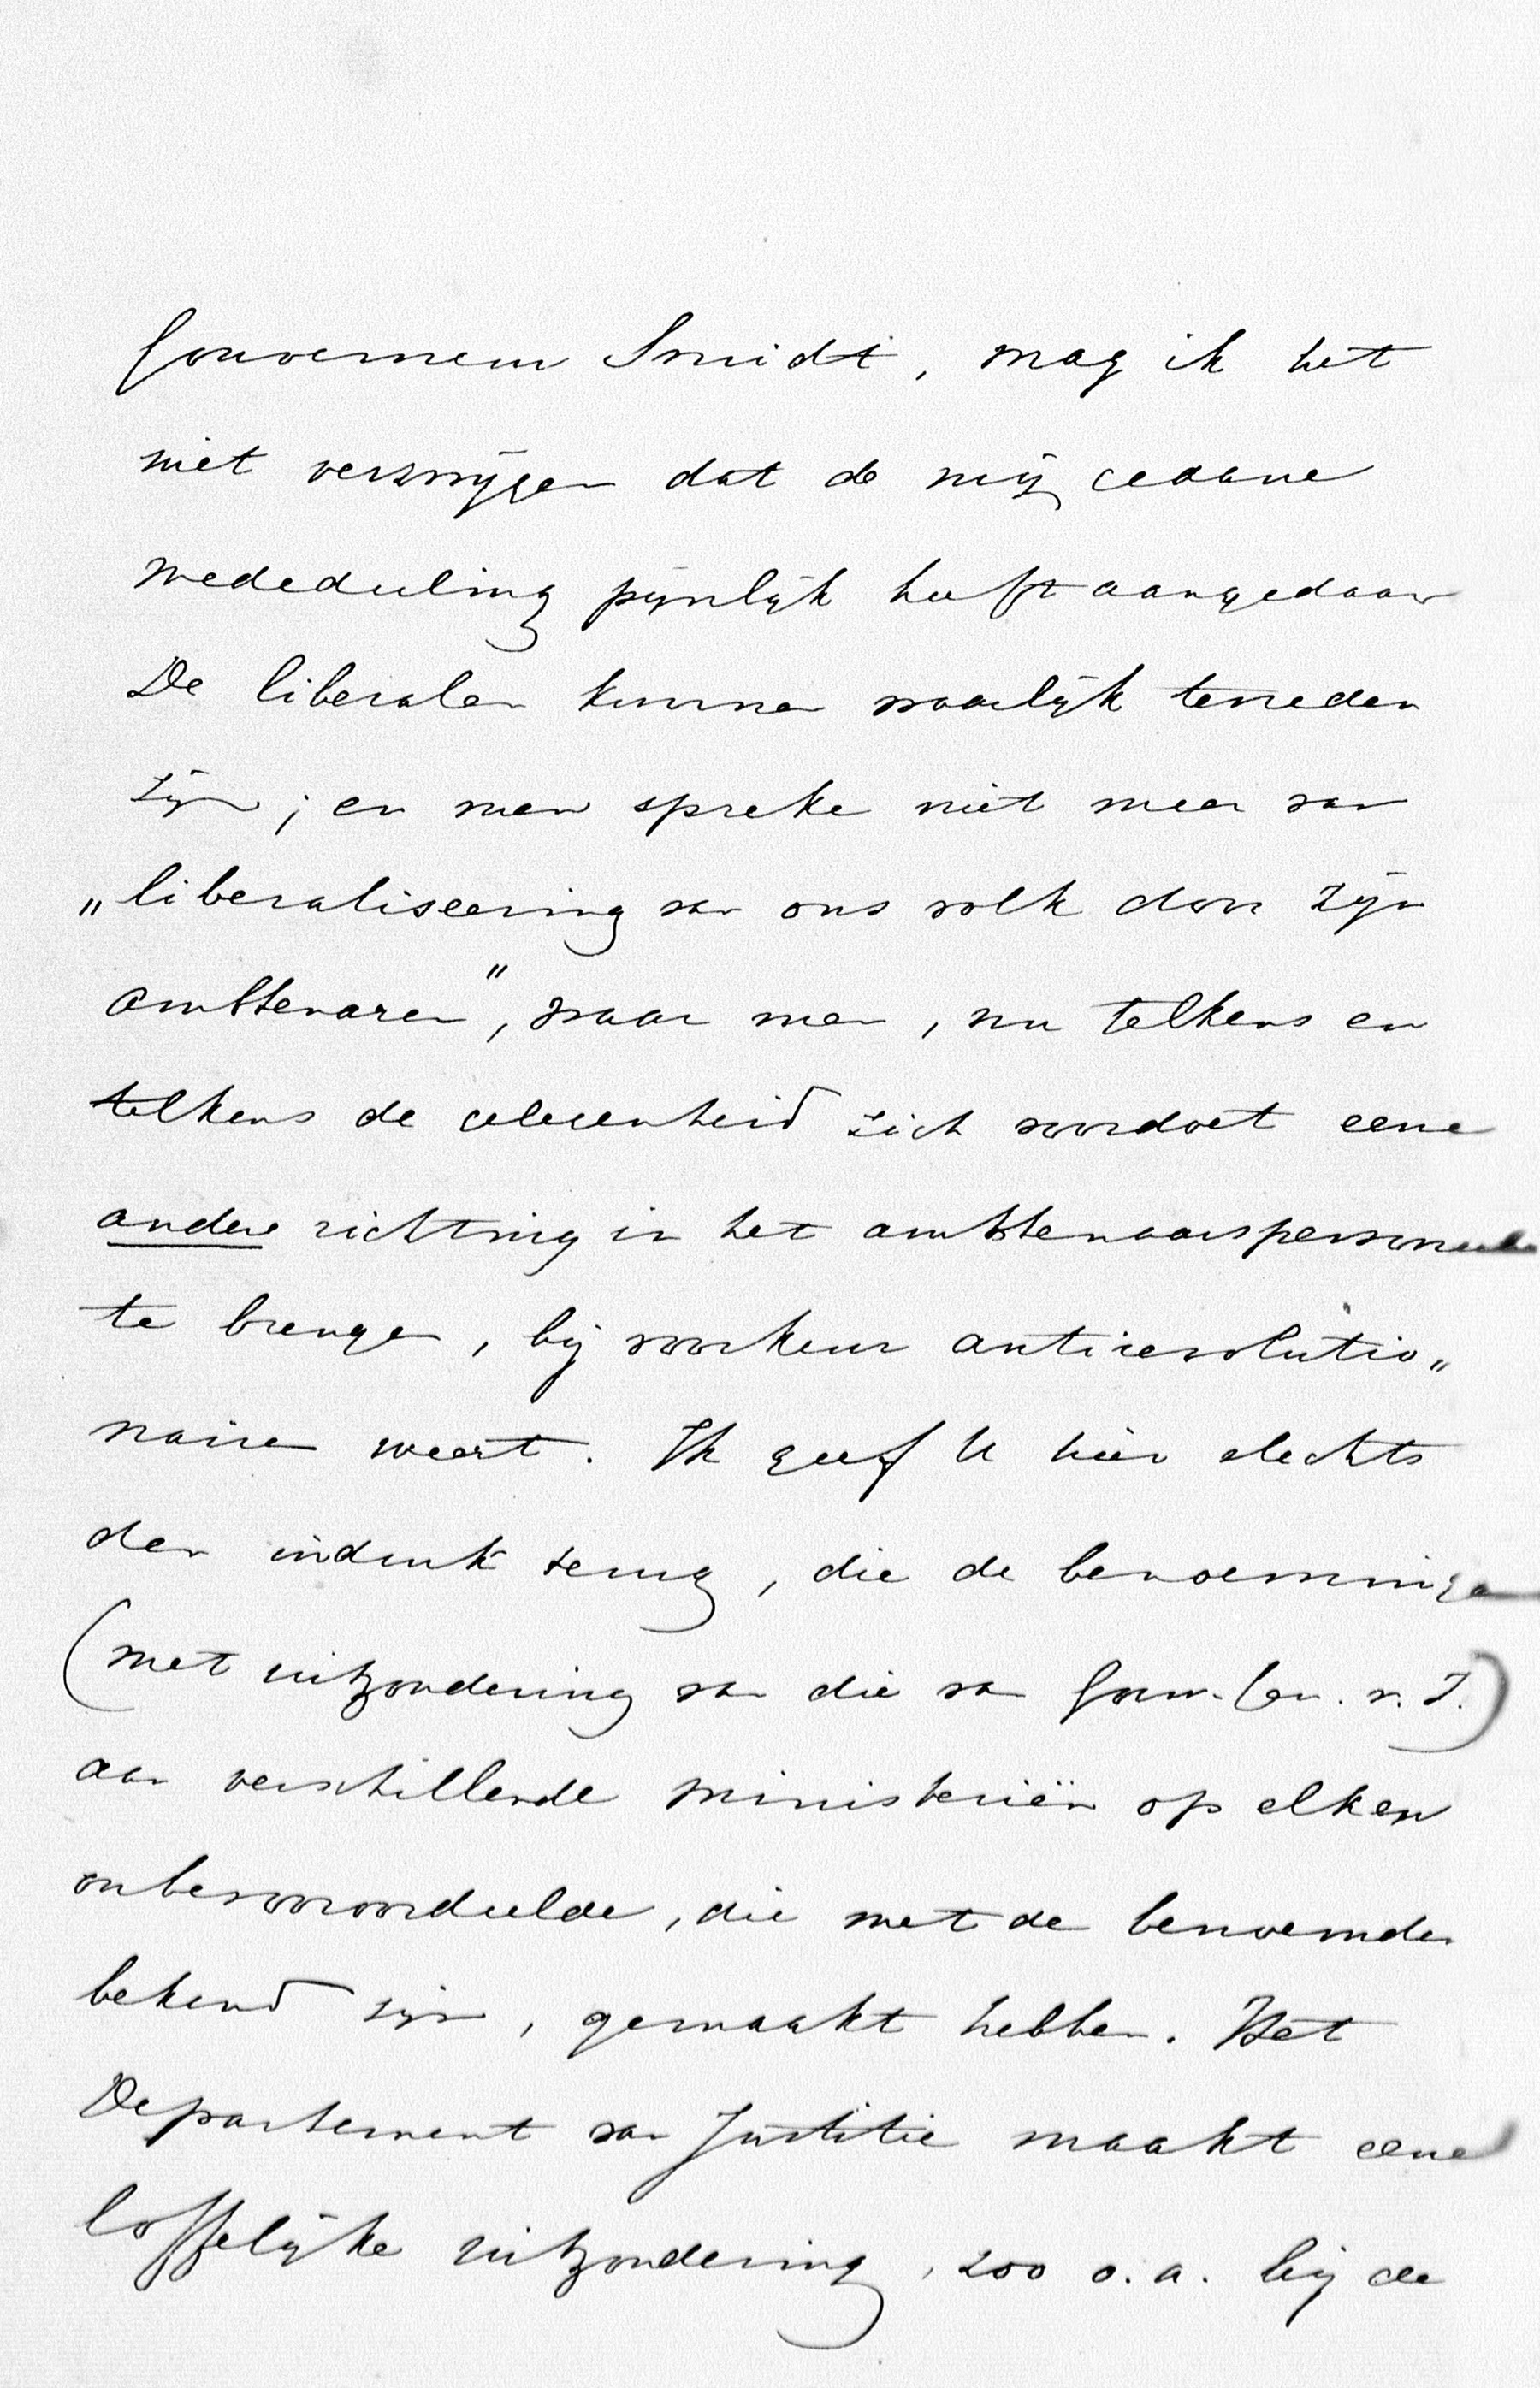 Gouverneur Smidt, mag ik het
niet verzwijgen dat de mij gedane
mededeeling pijnlijk heeft aangedaan
De liberalen kunnen waarlijk tevreden
zijn; en men spreke niet meer van
„liberaliseering van ons volk door zijn
ambtenaren”, waar men, nu telkens en
telkens de gelegenheid zich voordoet eene
andere richting in het ambtenaarspersoneel
te brengen, bij voorkeur antirevolutio„
nairen weert. Ik geef U hier slechts
den indruk terug, die de benoemingen
(met uitzondering van die van Gouv. Gen. v. I.)
aan verschillende ministeriën op elken
onbevooroordeelde, die met de benoemden
bekend zijn, gemaakt hebben. Het
Departement van Justitie maakt eene
loffelijke uitzondering, zoo o.a. bij de